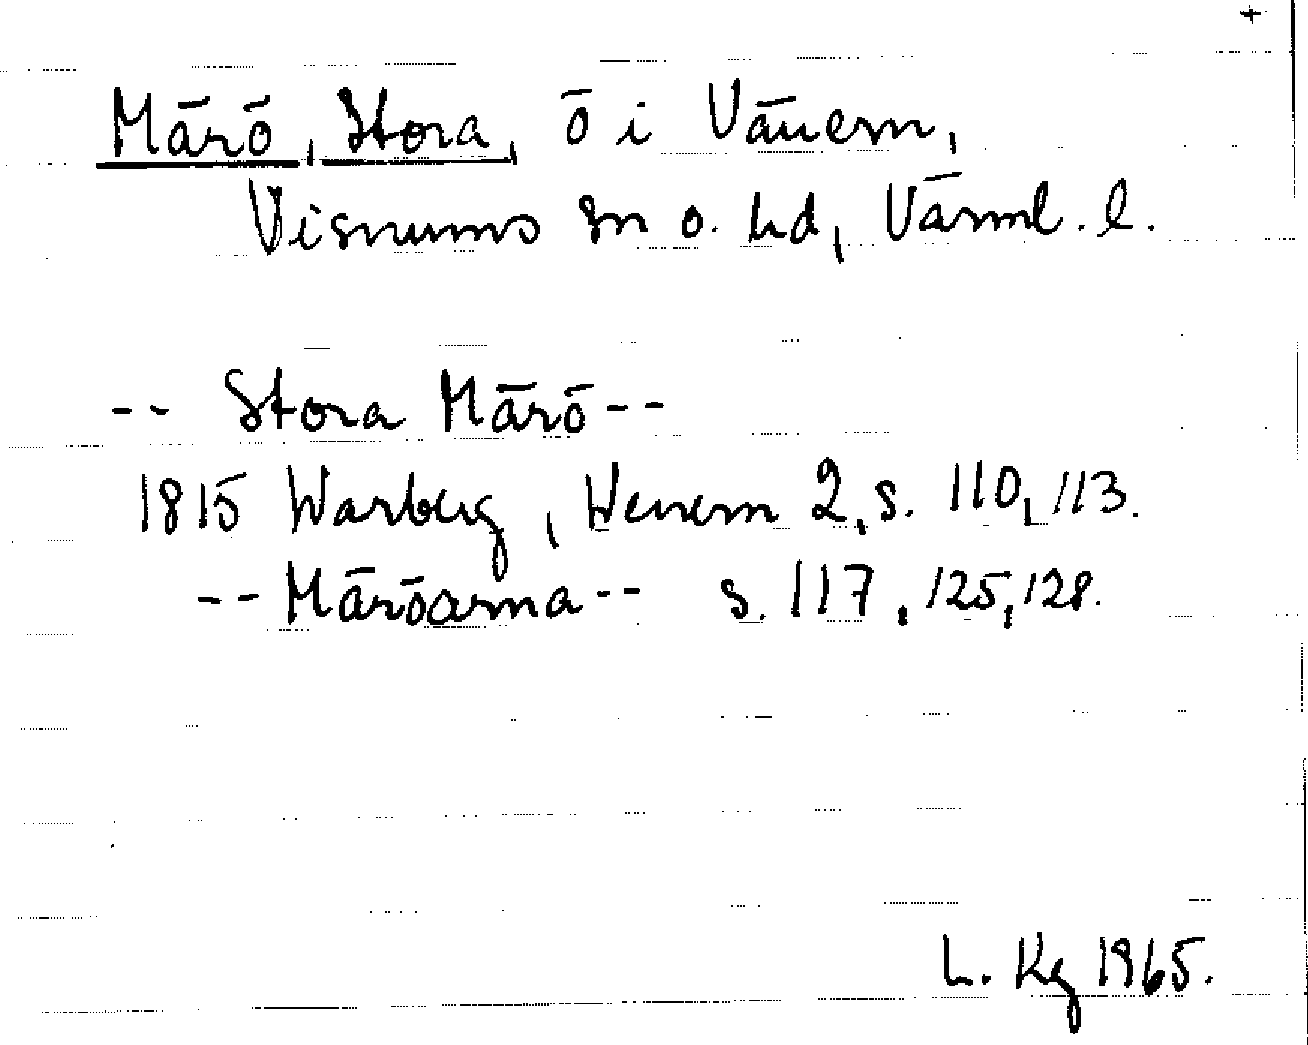 +
Märö, Stora, ö i Vänern,
Visnums sn o. hd, Värml. l.
-- Stora Märö --
1815 Warberg, Wenern 2, s. 110, 113.
-- Märöarna -- s. 117, 125, 128.
L. Kg 1965.